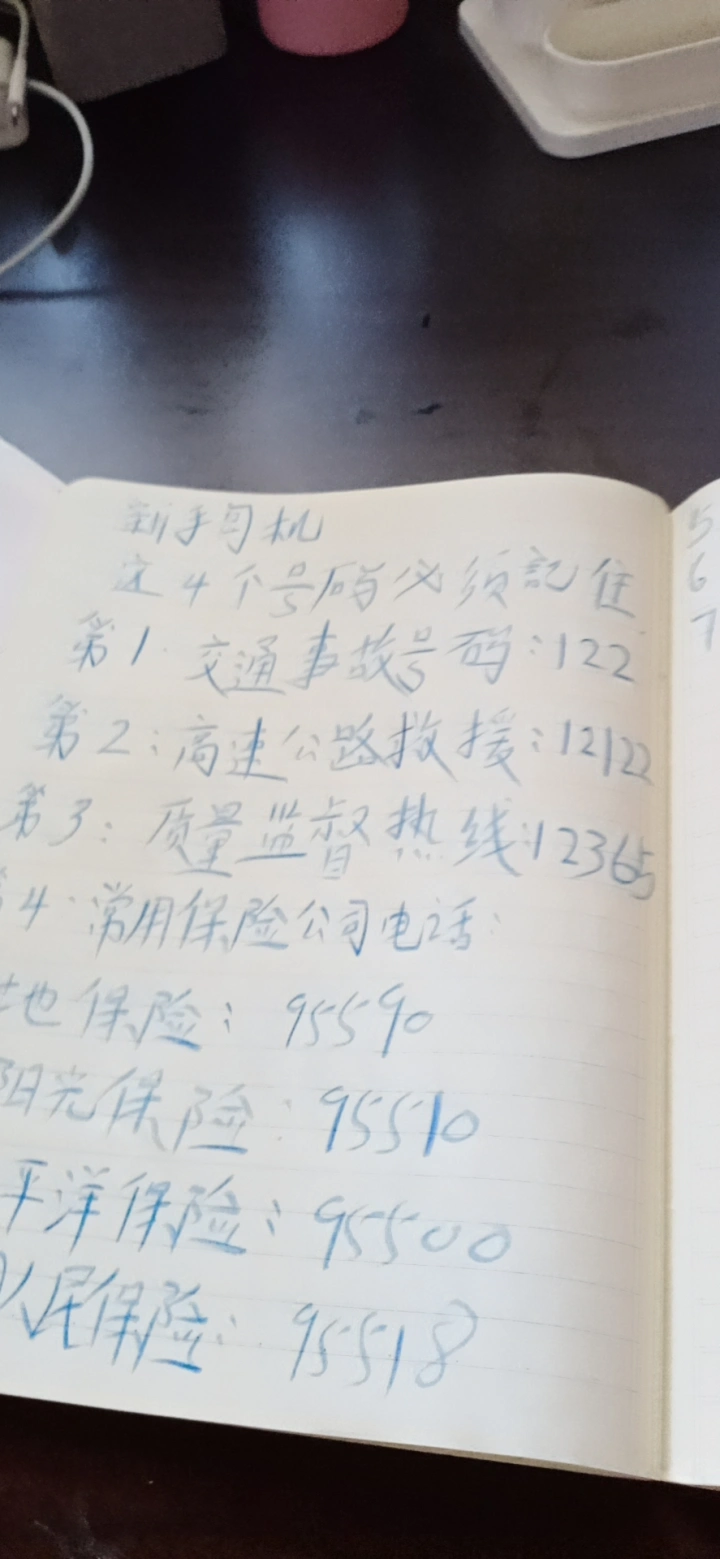 新手司机
这4个号码必须記住
第1.交通事故号码:122
第2:高速公路救援:12122
第3:质量监督热线:12365
4.常用保险公司电话:
地保险:95590
阳光保险:95510
平洋保险:95500
人民保险:95518
5
6
7